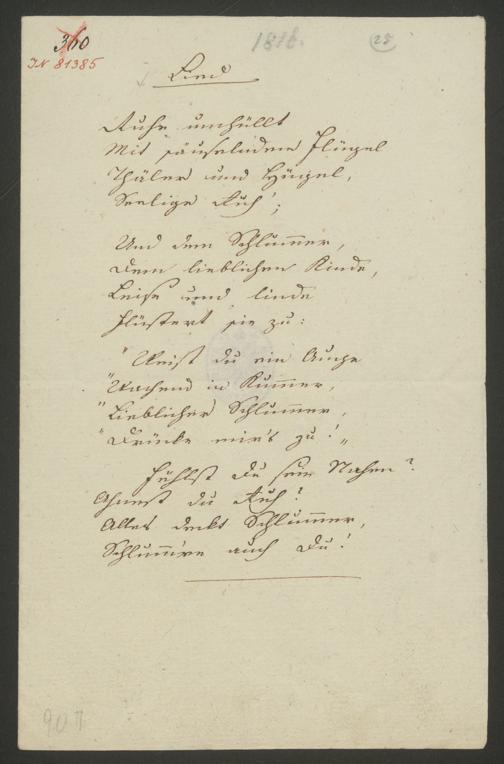 360
IN 81385
1816.
25
Lied
Ruhe umhüllt
Mit säuselndem Flügel
Thäler und Hügel,
Seelige Ruh';
Und dem Schlummer,
Dem lieblichen Kinde,
Leise und linde
Flüstert sie zu:
"Weist du ein Auge
"Wachend in Kummer,
"Lieblicher Schlummer,
"Drücke mir's zu!"
Fühlst du sein Nahen?
Ahnest du Ruh?
Alles deckt Schlummer,
Schlumm're auch Du!
90